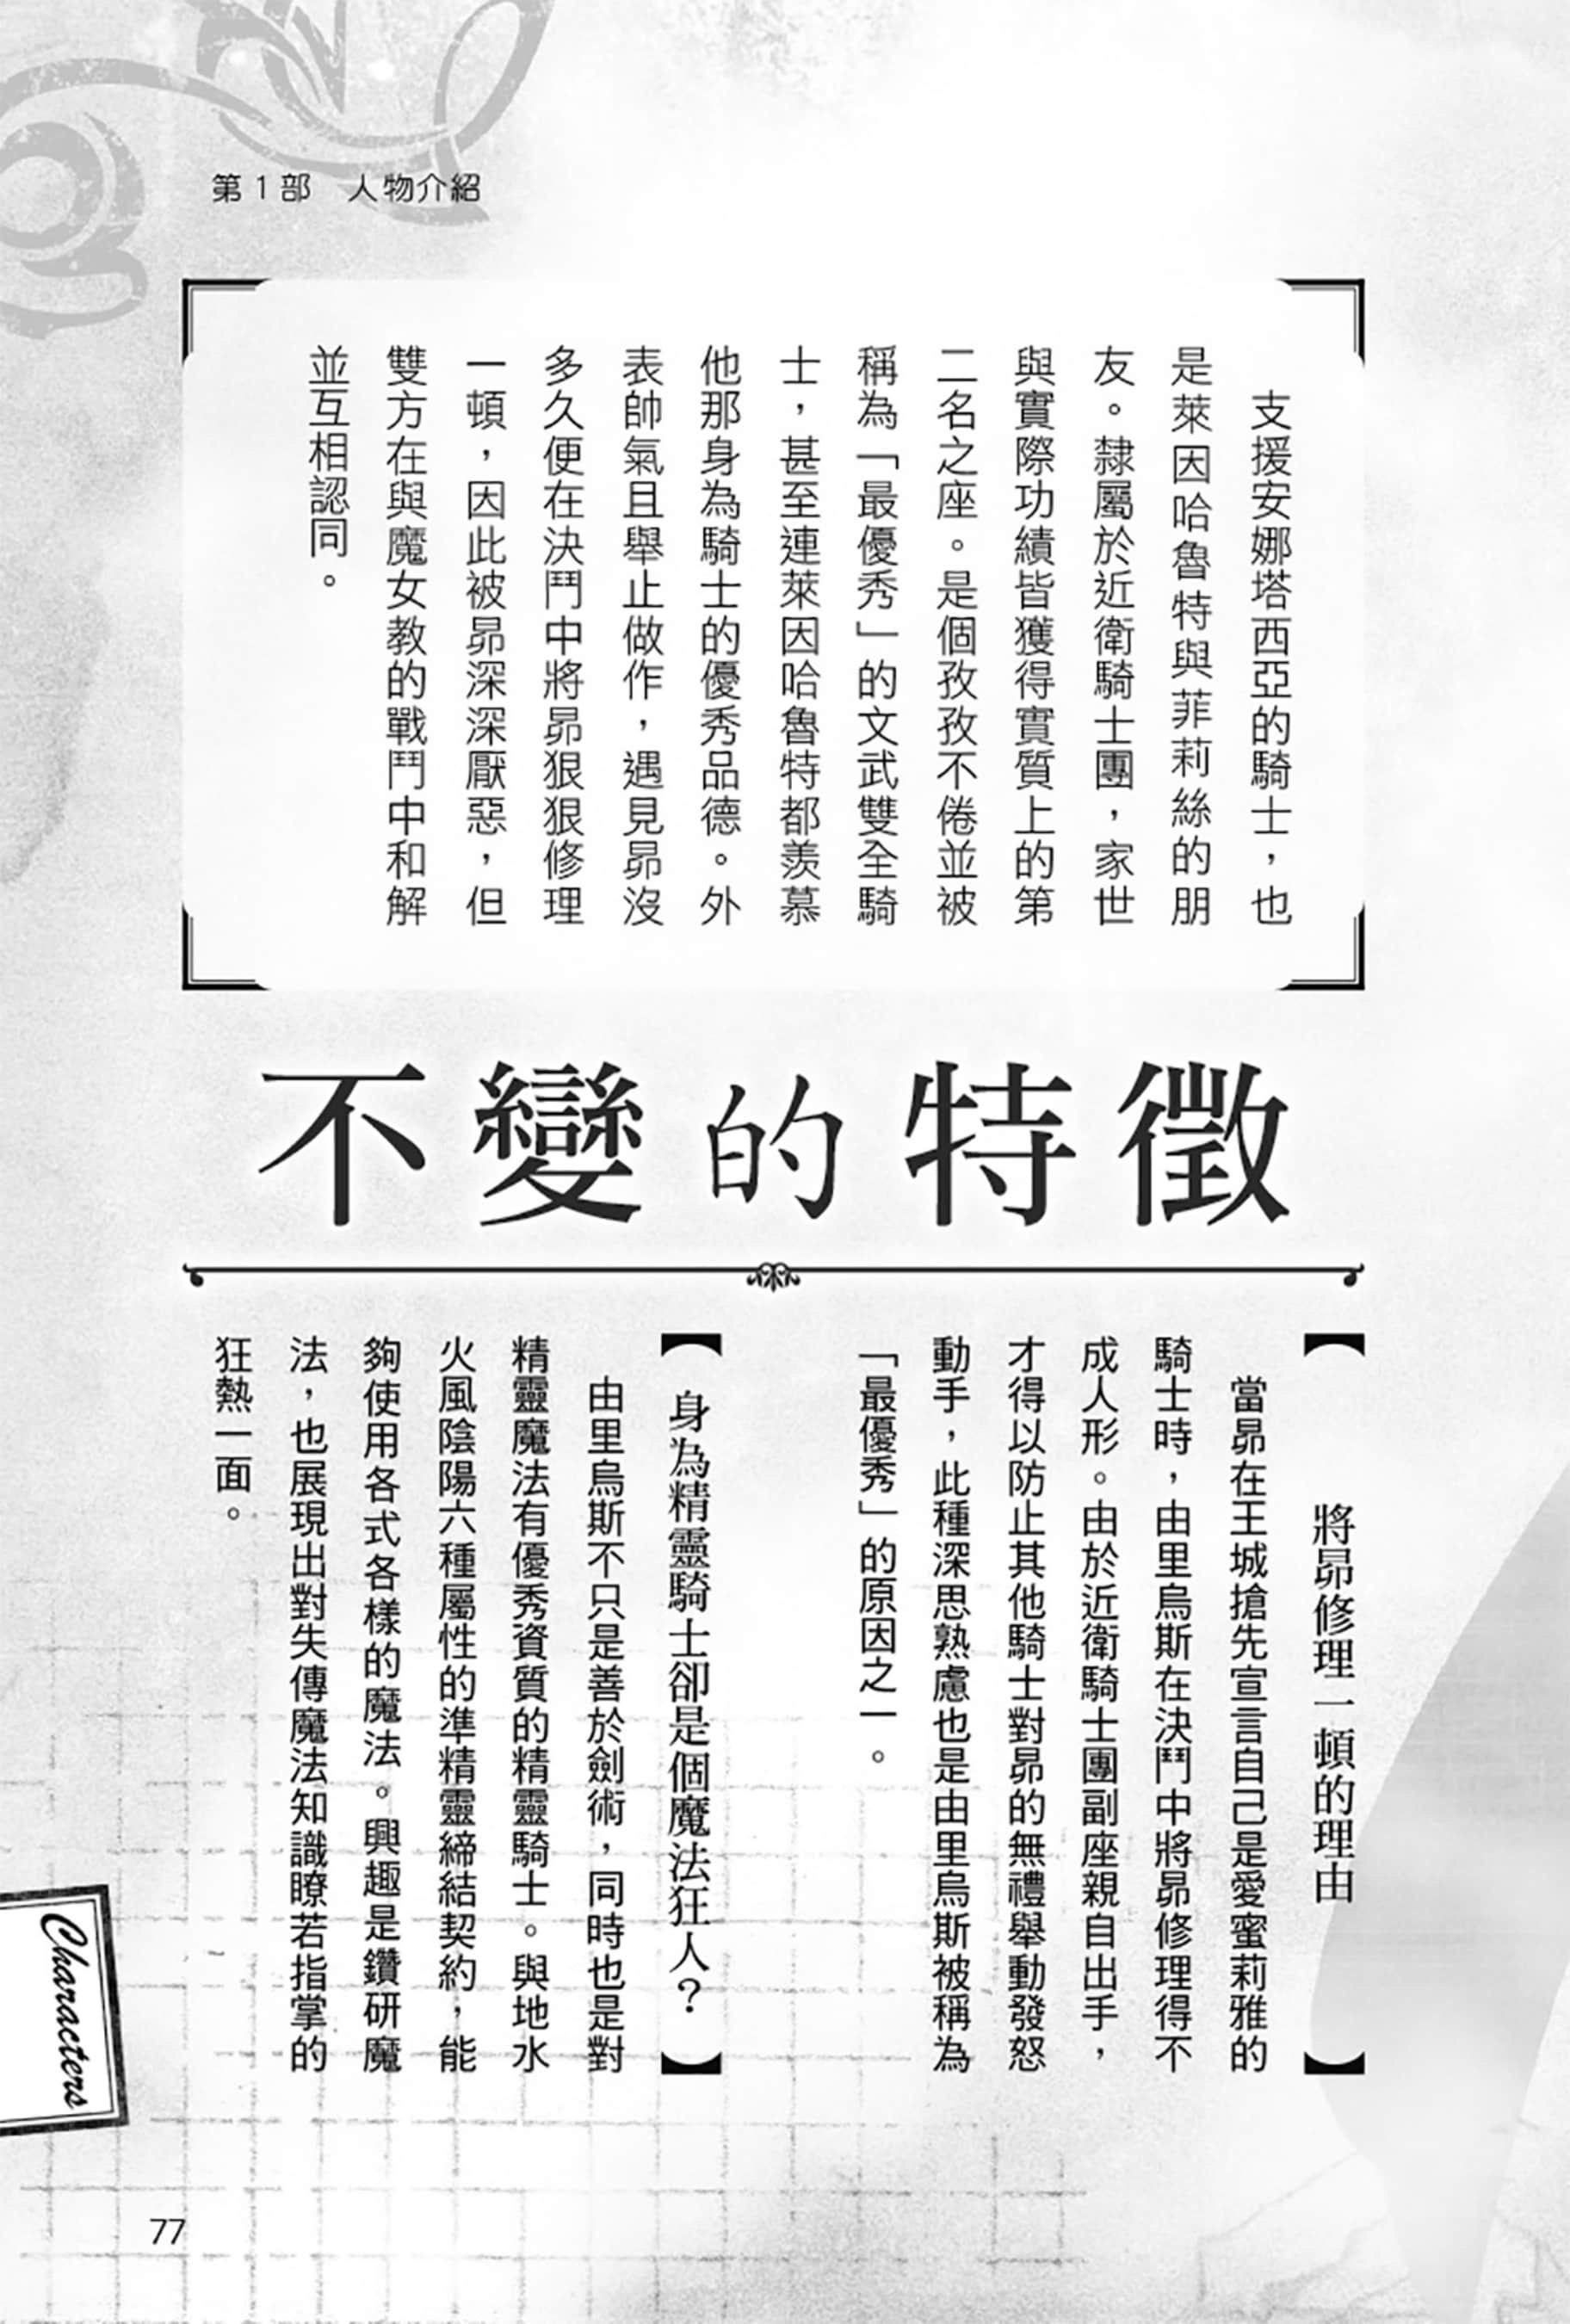 第1部　人物介紹
支援安娜塔西亞的騎士，也
是萊因哈魯特與菲莉絲的朋
友。隸屬於近衛騎士團，家世
與實際功績皆獲得實質上的第
二名之座。是個孜孜不倦並被
稱為「最優秀」的文武雙全騎
士，甚至連萊因哈魯特都羨慕
他那身為騎士的優秀品德。外
表帥氣且舉止做作，遇見昴沒
多久便在決鬥中將昴狠狠修理
一頓，因此被昴深深厭惡，但
雙方在與魔女教的戰鬥中和解
並互相認同。
不變的特徵
【將昴修理一頓的理由】
當昴在王城搶先宣言自己是愛蜜莉雅的
騎士時，由里烏斯在決鬥中將昴修理得不
成人形。由於近衛騎士團副座親自出手，
才得以防止其他騎士對昴的無禮舉動發怒
動手，此種深思熟慮也是由里烏斯被稱為
「最優秀」的原因之一。
【身為精靈騎士卻是個魔法狂人？】
由里烏斯不只是善於劍術，同時也是對
精靈魔法有優秀資質的精靈騎士。與地水
火風陰陽六種屬性的準精靈締結契約，能
夠使用各式各樣的魔法。興趣是鑽研魔
法，也展現出對失傳魔法知識瞭若指掌的
狂熱一面。
Characters
77